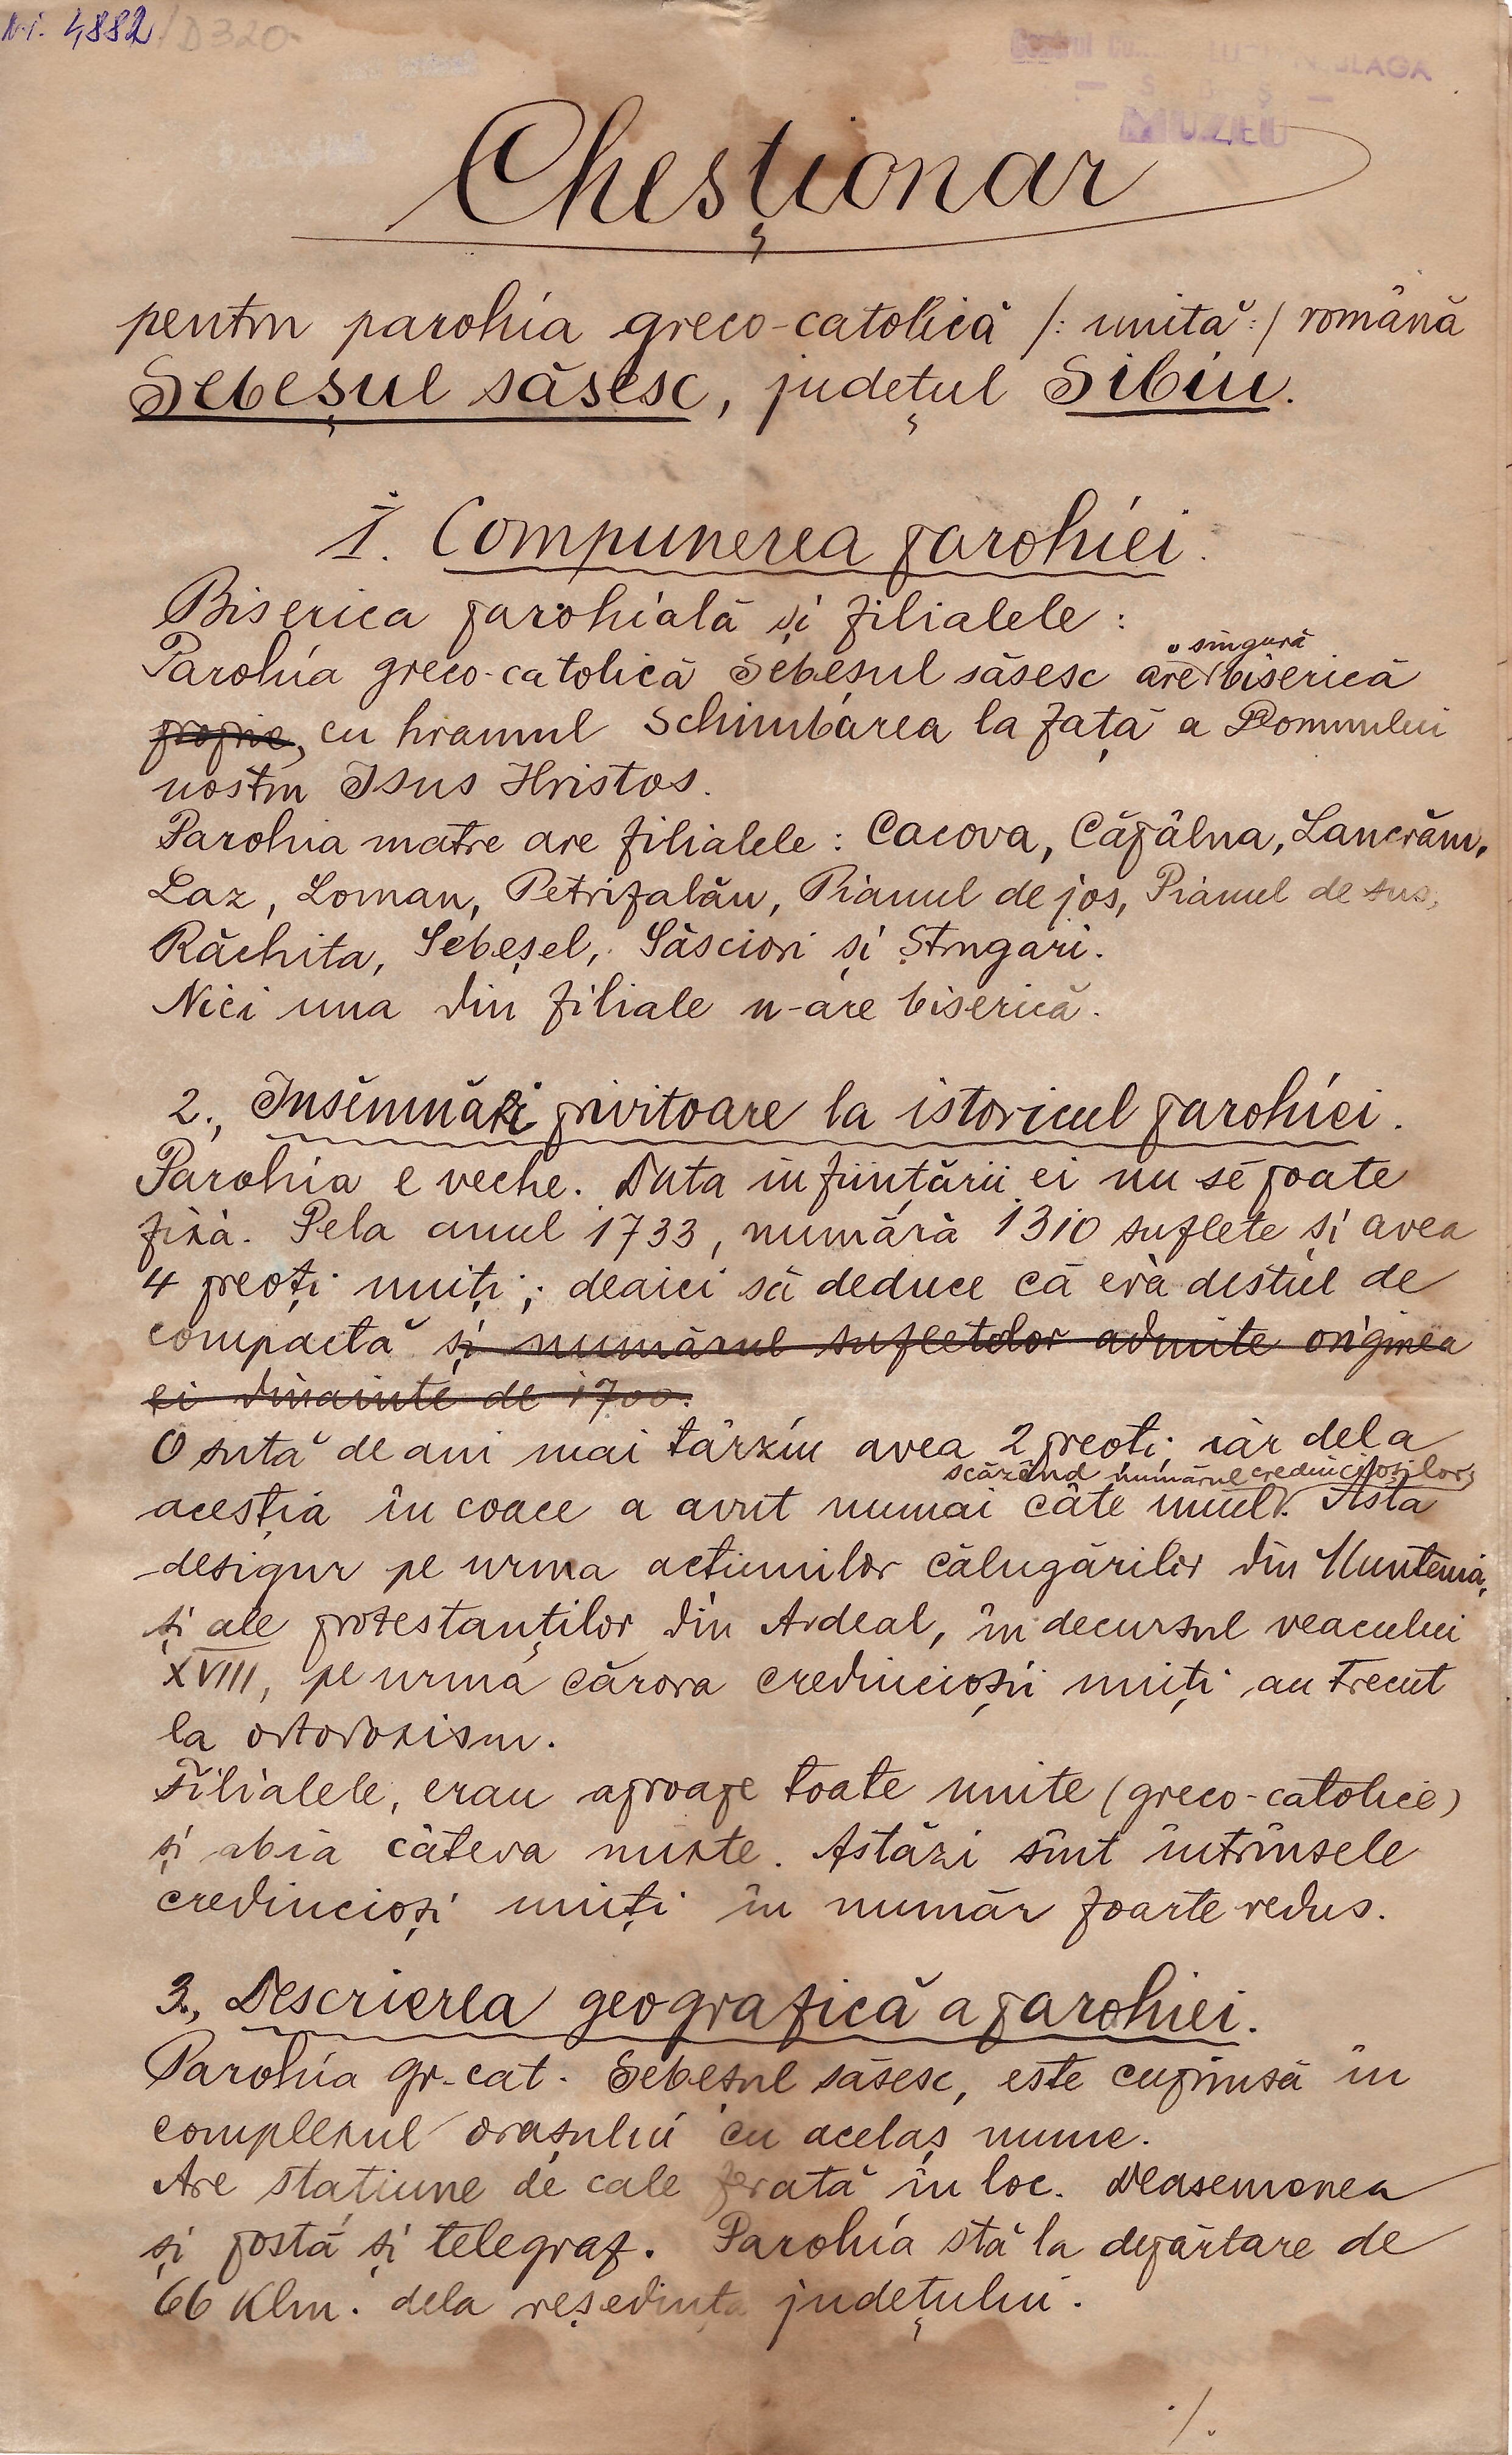 N.i. 4882/D320
Centrul Cu... LU... BLAGA
— S B Ș —
MUZEU
Chesționar
pentru parohia greco-catolică /: unită :/ română
Sebeșul săsesc, județul Sibiu.
1. Compunerea parohiei.
Biserica parohială și filialele:
o singură
Parohia greco-catolică Sebeșul săsesc are biserică
proprie, cu hramul Schimbarea la față a Domnului
nostru Isus Hristos.
Parohia matre are filialele: Cacova, Căpâlna, Lancrăm,
Laz, Loman, Petrifalău, Pianul de jos, Pianul de sus,
Răchita, Sebeșel, Săsciori și Strugari.
Nici una din filiale n-are biserică.
2., Insemnări privitoare la istoricul parohiei.
Parohia e veche. Data înființării ei nu se poate
fixà. Pela anul 1733, numără 1310 suflete și avea
4 preoți uniți; deaici să deduce că erà destul de
compactă și numărul sufletelor admite originea
ei dinainte de 1700.
O sută de ani mai târziu avea 2 preoți iar dela
scăzând numărul credincioșilor
aceștia în coace a avut numai câte unul. Asta
desigur pe urma acțiunilor călugărilor din Muntenia,
și ale protestanților din Ardeal, în decursul veacului
XVIII, pe urma cărora credincioșii uniți au trecut
la ortodoxism.
Filialele, erau aproape toate unite (greco-catolice)
și abia câteva mixte. Astăzi sînt întrînsele
credincioși uniți în număr foarte redus.
3., Descrierea geografică a parohiei.
Parohia gr-cat. Sebeșul săsesc, este cuprinsă în
complexul orașului cu acelaș nume.
Are stațiune de cale ferată în loc. Deasemenea
și poștă și telegraf. Parohia stă la depărtare de
66 Klm. dela reședința județului.
./.